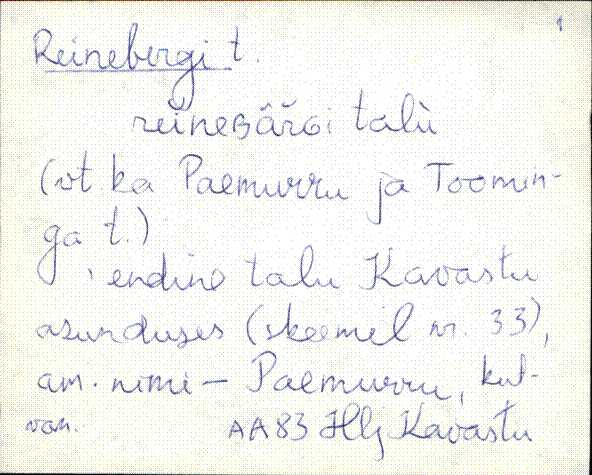 1
Reinebergi t.
reineBârGi talù
(vt. ka Paemurru ja Toomin-
ga t.)
endine talu Kavastu
asunduses (skeemil nr. 33),
am. nimi – Paemurru, kut-
van. AA83 Hlj Kavastu